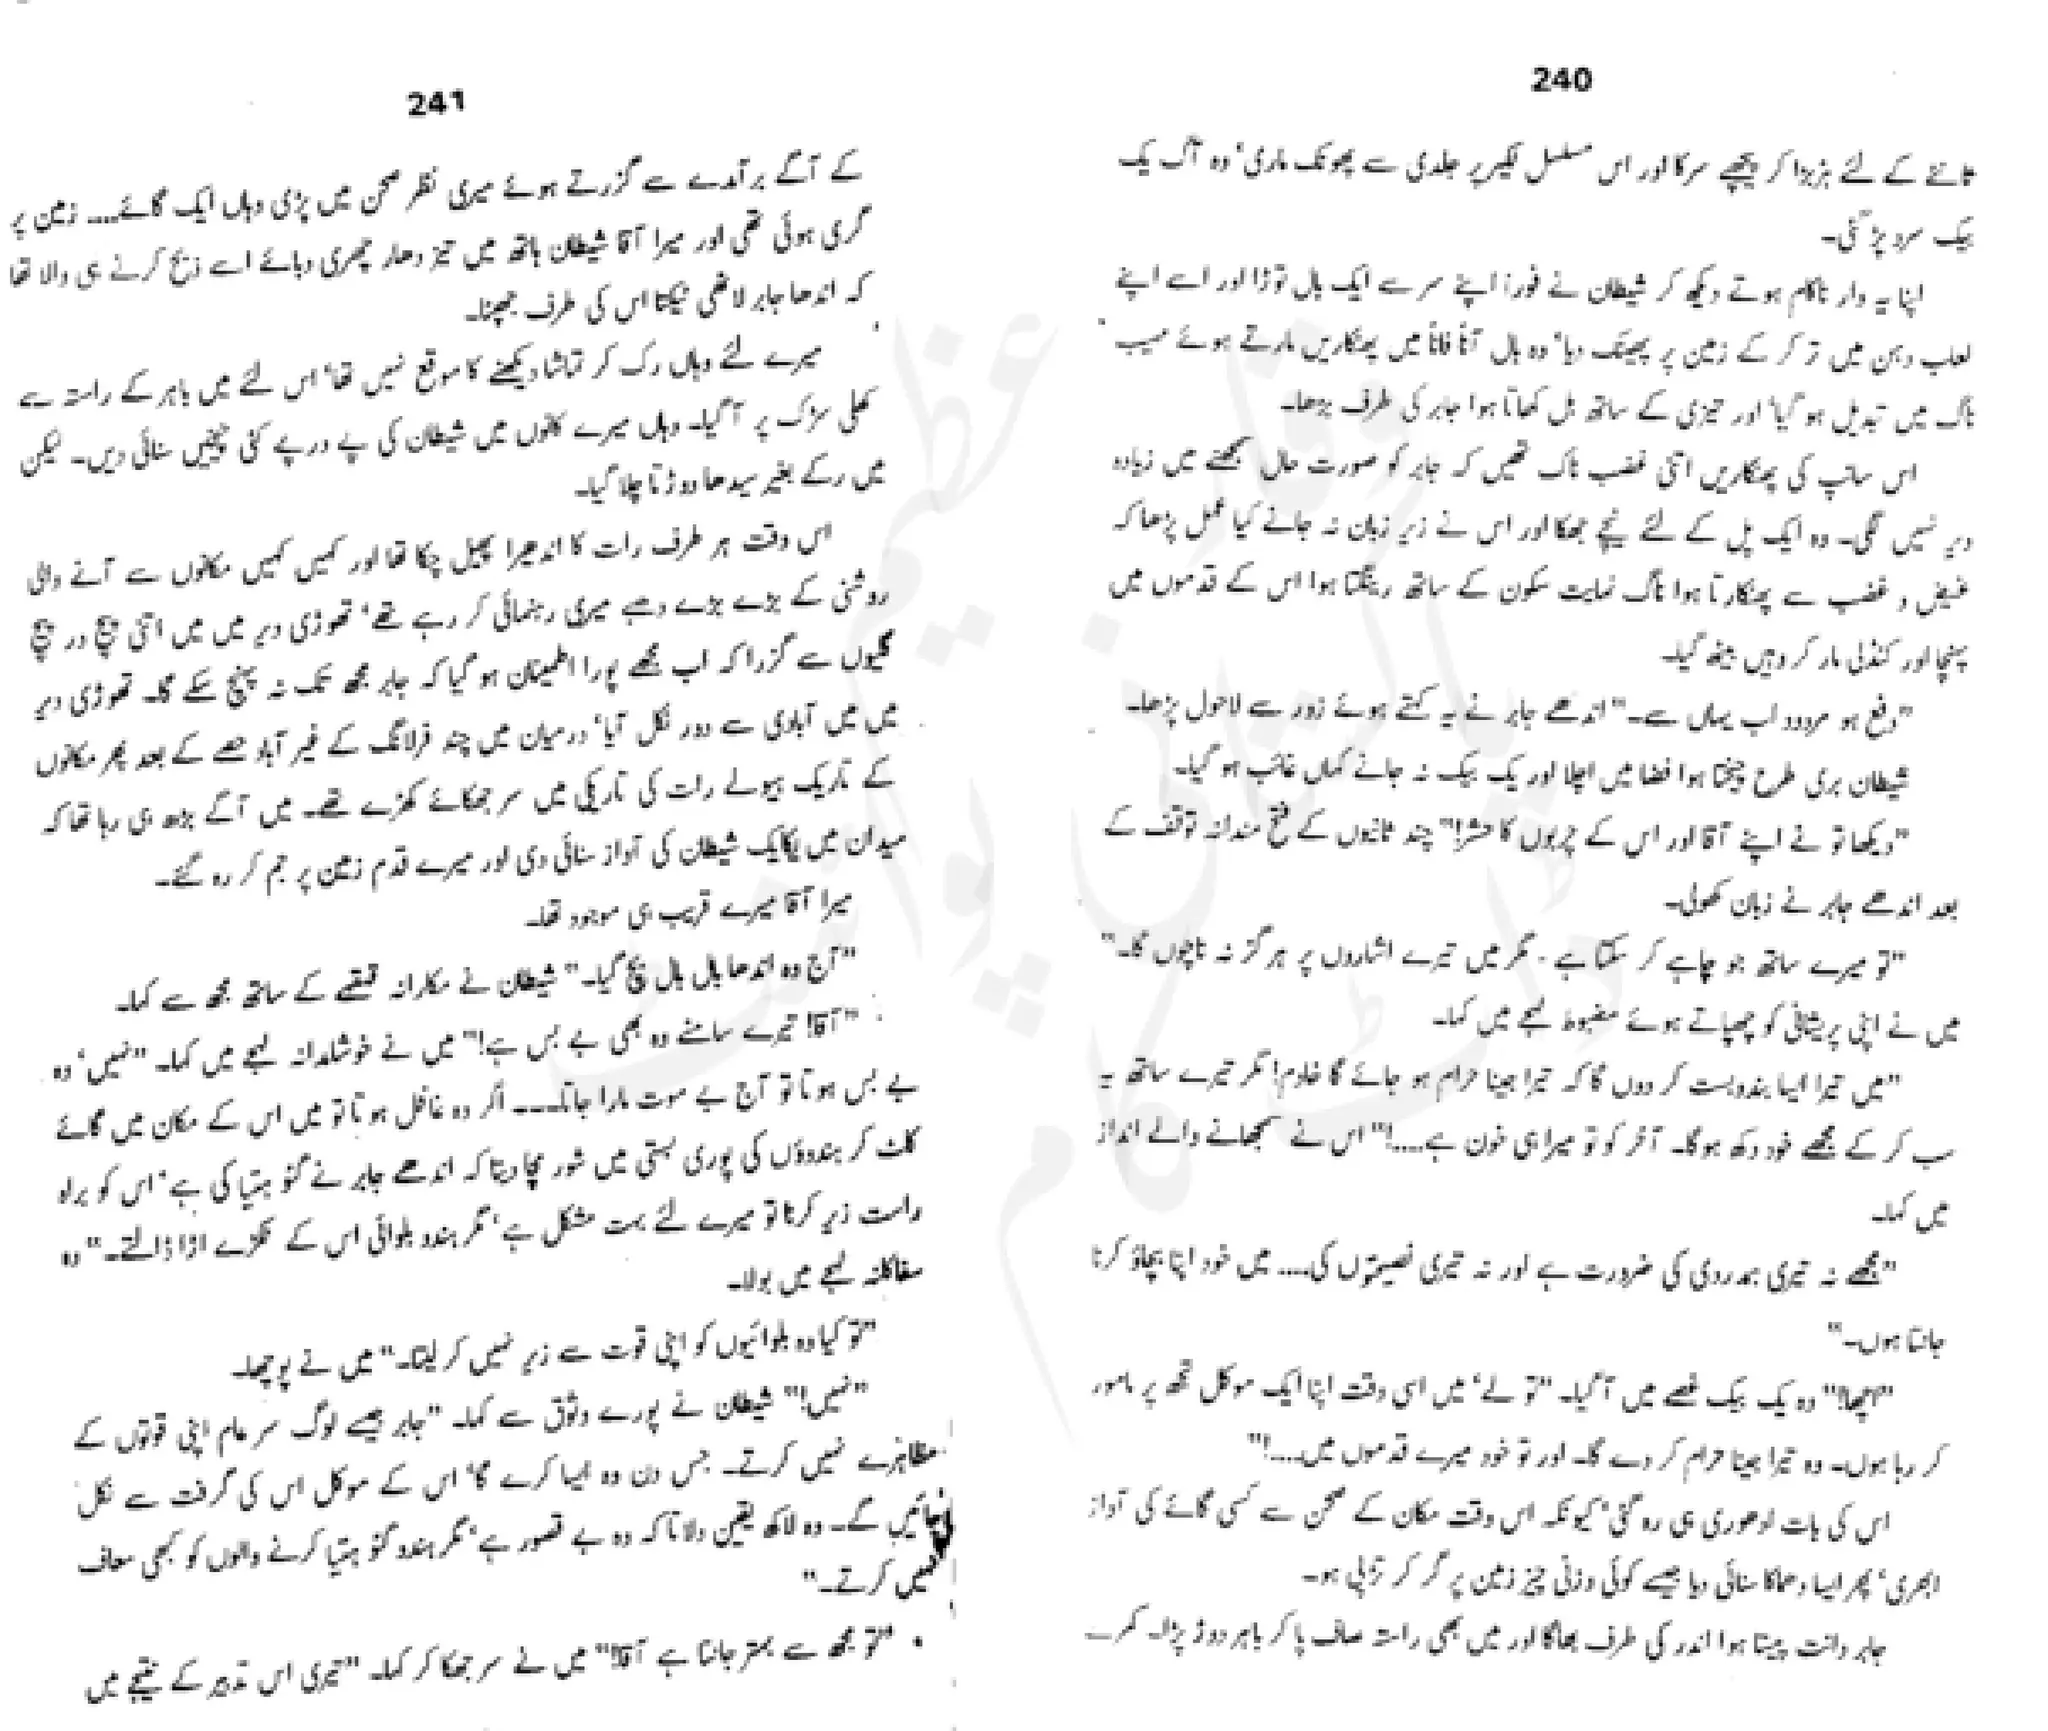 240
ثانئے کے لئے ہڑبڑا کر پیچھے سرکا اور اس مسلسل لکیر پر جلدی سے پھونک ماری‘ وہ آگ یک
بیک سرد پڑ گئی۔
اپنا یہ وار ناکام ہوتے دیکھ کر شیطان نے فوراً اپنے سر سے ایک بال توڑا اور اسے اپنے
لعاب دہن میں تر کر کے زمین پر پھینک دیا‘ وہ بال آناً فاناً میں پھنکاریں مارتے ہوئے مہیب
ناگ میں تبدیل ہو گیا‘ اور تیزی کے ساتھ بل کھاتا ہوا جابر کی طرف بڑھا۔
اس سانپ کی پھنکاریں اتنی غضب ناک تھیں کہ جابر کو صورت حال سمجھنے میں زیادہ
دیر نہیں لگی۔ وہ ایک پل کے لئے نیچے جھکا اور اس نے زیر زبان نہ جانے کیا عمل پڑھا کہ
غیض و غضب سے پھنکارتا ہوا ناگ نہایت سکون کے ساتھ رینگتا ہوا اس کے قدموں میں
پہنچا اور کنڈلی مار کر وہیں بیٹھ گیا۔
”دفع ہو مردود اب یہاں سے۔“ اندھے جابر نے یہ کہتے ہوئے زور سے لاحول پڑھا۔
شیطان بری طرح چیختا ہوا فضا میں اچلا اور یک بیک نہ جانے کہاں غائب ہو گیا۔
”دیکھا تو نے اپنے آقا اور اس کے حربوں کا حشر!“ چند ثانیوں کے فتح مندانہ توقف کے
بعد اندھے جابر نے زبان کھولی۔
”تو میرے ساتھ جو چاہے کر سکتا ہے۔ مگر میں تیرے اشاروں پر ہرگز نہ ناچوں گا۔“
میں نے اپنی پریشانی کو چھپاتے ہوئے مضبوط لہجے میں کہا۔
”میں تیرا ایسا بندوبست کر دوں گا کہ تیرا جینا حرام ہو جائے گا خادم! مگر تیرے ساتھ یہ
سب کر کے مجھے خود دکھ ہوگا۔ آخر کو تو میرا ہی خون ہے....!“ اس نے سمجھانے والے انداز
میں کہا۔
”مجھے نہ تیری ہمدردی کی ضرورت ہے اور نہ تیری نصیحتوں کی.... میں خود اپنا بچاؤ کرنا
جانتا ہوں۔“
”اچھا!“ وہ یک بیک غصے میں آ گیا۔ ”تو لے‘ میں اسی وقت اپنا ایک موکل تجھ پر مامور
کر رہا ہوں۔ وہ تیرا جینا حرام کر دے گا۔ اور تو خود میرے قدموں میں....!“
اس کی بات ادھوری ہی رہ گئی‘ کیونکہ اس وقت مکان کے صحن سے کسی گائے کی آواز
ابھری‘ پھر ایسا دھماکا سنائی دیا جیسے کوئی وزنی چیز زمین پر گر کر تڑپی ہو۔
جابر دانت پیستا ہوا اندر کی طرف بھاگا اور میں بھی راستہ صاف پا کر باہر دوڑ پڑا۔ کمرے
241
کے آگے برآمدے سے گزرتے ہوئے میری نظر صحن میں پڑی وہاں ایک گائے.... زمین پر
گری ہوئی تھی اور میرا آقا شیطان ہاتھ میں تیز دھار چھری دبائے اسے ذبح کرنے ہی والا تھا
کہ اندھا جابر لاٹھی ٹیکتا اس کی طرف جھپٹا۔
میرے لئے وہاں رک کر تماشا دیکھنے کا موقع نہیں تھا‘ اس لئے میں باہر کے راستہ سے
کھلی سڑک پر آ گیا۔ وہاں میرے کانوں میں شیطان کی پے درپے کئی چیخیں سنائی دیں۔ لیکن
میں رکے بغیر سیدھا دوڑتا چلا گیا۔
اس وقت ہر طرف رات کا اندھیرا پھیل چکا تھا اور کہیں کہیں مکانوں سے آنے والی
روشنی کے بڑے بڑے دھبے میری رہنمائی کر رہے تھے‘ تھوڑی دیر میں میں اتنی پیچ در پیچ
گلیوں سے گزرا کہ اب مجھے پورا اطمینان ہو گیا کہ جابر مجھ تک نہ پہنچ سکے گا۔ تھوڑی دیر
میں میں آبادی سے دور نکل آیا‘ درمیان میں چند فرلانگ کے غیر آباد حصے کے بعد پھر مکانوں
کے تاریک ہیولے رات کی تاریکی میں سر جھکائے کھڑے تھے۔ میں آگے بڑھ ہی رہا تھا کہ
میدان میں یکایک شیطان کی آواز سنائی دی اور میرے قدم زمین پر جم کر رہ گئے۔
میرا آقا میرے قریب ہی موجود تھا۔
”آج وہ اندھا بال بال بچ گیا۔“ شیطان نے مکارانہ قہقہے کے ساتھ مجھ سے کہا۔
”آقا! تیرے سامنے وہ بھی بے بس ہے!“ میں نے خوشامدانہ لہجے میں کہا۔ ”نہیں‘ وہ
بے بس ہوتا تو آج بے موت مارا جاتا.... اگر وہ غافل ہوتا تو میں اس کے مکان میں گائے
کاٹ کر ہندوؤں کی پوری بستی میں شور مچا دیتا کہ اندھے جابر نے گئو ہتیا کی ہے‘ اس کو براہ
راست زیر کرنا تو میرے لئے بہت مشکل ہے‘ مگر ہندو بلوائی اس کے ٹکڑے اڑا ڈالتے۔“ وہ
سفاکانہ لہجے میں بولا۔
”تو کیا وہ بلوائیوں کو اپنی قوت سے زیر نہیں کر لیتا۔“ میں نے پوچھا۔
”نہیں!“ شیطان نے پورے وثوق سے کہا۔ ”جابر جیسے لوگ سرعام اپنی قوتوں کے
مظاہرے نہیں کرتے۔ جس دن وہ ایسا کرے گا‘ اس کے موکل اس کی گرفت سے نکل
جائیں گے۔ وہ لاکھ یقین دلاتا کہ وہ بے قصور ہے‘ مگر ہندو گئو ہتیا کرنے والوں کو کبھی معاف
نہیں کرتے۔“
”تو مجھ سے بہتر جانتا ہے آقا!“ میں نے سر جھکا کر کہا۔ ”تیری اس تدبیر کے نتیجے میں
پاکستانی پوائنٹ
ڈاٹ کام